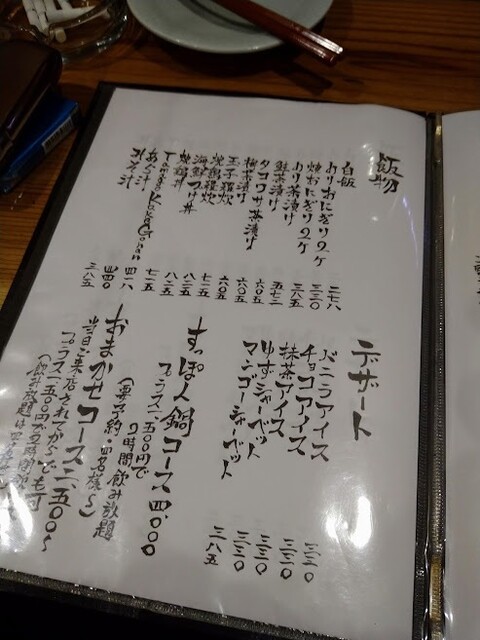 飯物
白飯 二七八
おにぎり2ヶ 三三〇
焼おにぎり2ヶ 三八五
のり茶漬け
鮭茶漬け 五七二
タコワサ茶漬け 六〇五
梅茶漬け 六〇五
玉子雑炊
鶏雑炊
海鮮つけ丼 八二五
焼鶏丼 八二五
Tamago Kake Gohan
あら汁 四一八
赤だし 四四〇
三八五
デザート
バニラアイス 三三〇
チョコアイス 三三〇
抹茶アイス 三三〇
ゆずシャーベット 三三〇
マンゴーシャーベット 三八五
すっぽん鍋コース 四〇〇〇
プラス一、五〇〇円で
2時間飲み放題
(要予約・四名様〜)
おまかせコース二、五〇〇〜
当日ご来店されてからでも可
プラス一、五〇〇円で2時間
(飲み放題は